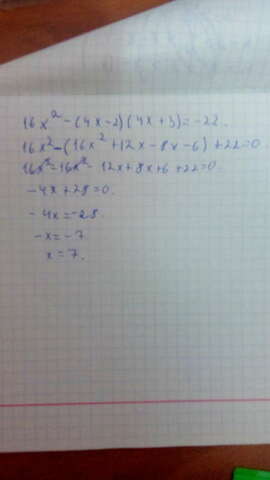 16x² - (4x-2)(4x+3) = -22.
16x² - (16x² + 12x - 8x - 6) + 22 = 0
16x² - 16x² - 12x + 8x + 6 + 22 = 0.
-4x + 28 = 0.
-4x = -28.
-x = -7
x = 7.